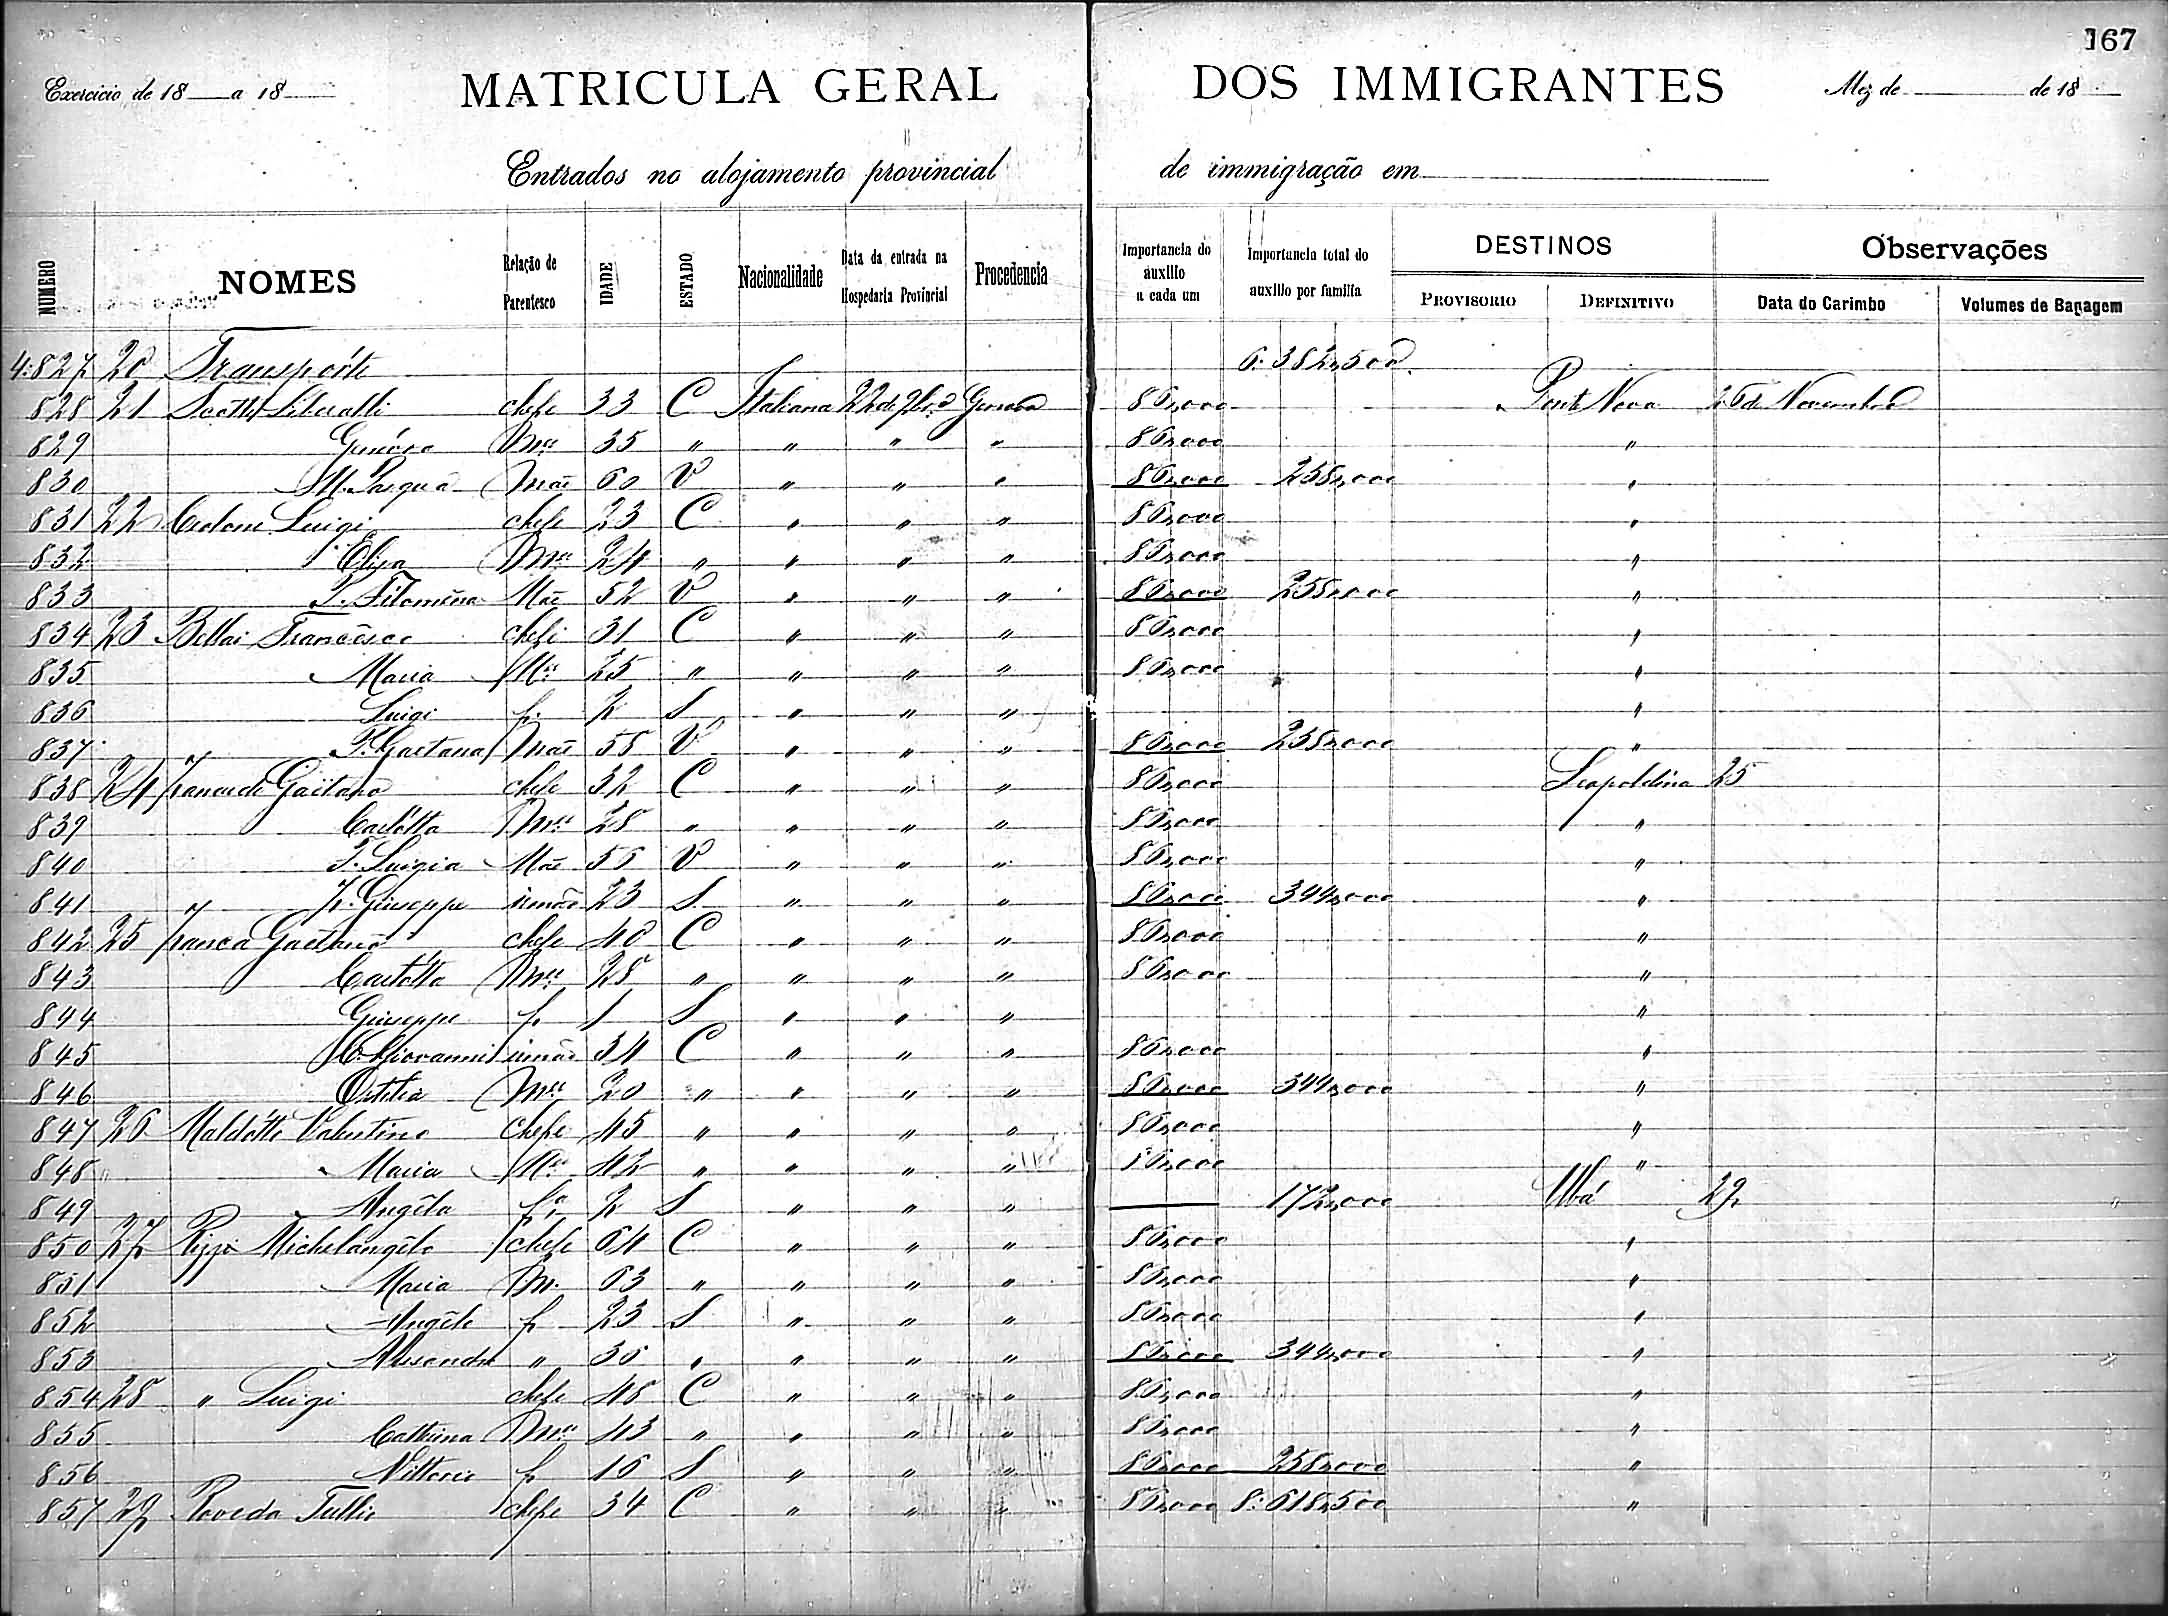 167
Exercicio de 18 a 18 MATRICULA GERAL DOS IMMIGRANTES Mez de de 18
Entrados no alojamento provincial de immigração em
NUMERO NOMES Relação de Parentesco IDADE ESTADO Nacionalidade Data da entrada na Hospedaria Provincial Procedencia Importancia do auxilio a cada um Importancia total do auxilio por familia DESTINOS PROVISORIO DEFINITIVO Observações Data do Carimbo Volumes de Bagagem
4:827 20 Transporte 6:382,500
828 21 Scotti Liberalli chefe 33 C Italiana 22 de 9bro Genova 86,000 Ponte Nova 26 de Novembro
829 Mer 35 " " " " 86,000 "
830 M. Pasqua Mãe 60 V " " " 86,000 258,000 "
831 22 Luigi chefe 23 C " " " 86,000 "
832 Elisa Mer 24 " " " " 86,000 "
833 Filomena Mãe 52 V " " " 86,000 258,000 "
834 23 Bellai Francesco chefe 31 C " " " 86,000 "
835 Maria Mer 25 " " " " 86,000 "
836 Luigi f. 2 S " " " "
837 Gaetana Mãe 58 V " " " 86,000 258,000 "
838 24 Gaetano chefe 32 C " " " 86,000 Leopoldina 25
839 Carlotta Mer 28 " " " " 86,000 "
840 Luigia Mãe 56 V " " " 86,000 "
841 Giuseppe irmão 23 S " " " 86,000 344,000 "
842 25 Franca Gaetano chefe 40 C " " " 86,000 "
843 Carlotta Mer 28 " " " " 86,000 "
844 Giuseppe f. 1 S " " " "
845 Giovanni irmão 34 C " " " 86,000 "
846 Mer 20 " " " " 86,000 344,000 "
847 26 Maldotti Valentino chefe 45 " " " " 86,000 "
848 Maria Mer 42 " " " " 86,000 "
849 Angela fa 2 S " " " 172,000 Ubá 27
850 27 Pizzi Michelangelo chefe 64 C " " " 86,000 "
851 Maria M. 63 " " " " 86,000 "
852 Angelo f 23 S " " " 86,000 "
853 " 30 " " " " 86,000 344,000 "
854 28 " Luigi chefe 48 C " " " 86,000 "
855 Catterina Mer 43 " " " " 86,000 "
856 Vittorio f. 16 S " " " 86,000 258,000 "
857 29 Roveda Tullio chefe 34 C " " " 86,000 8:618,500 "